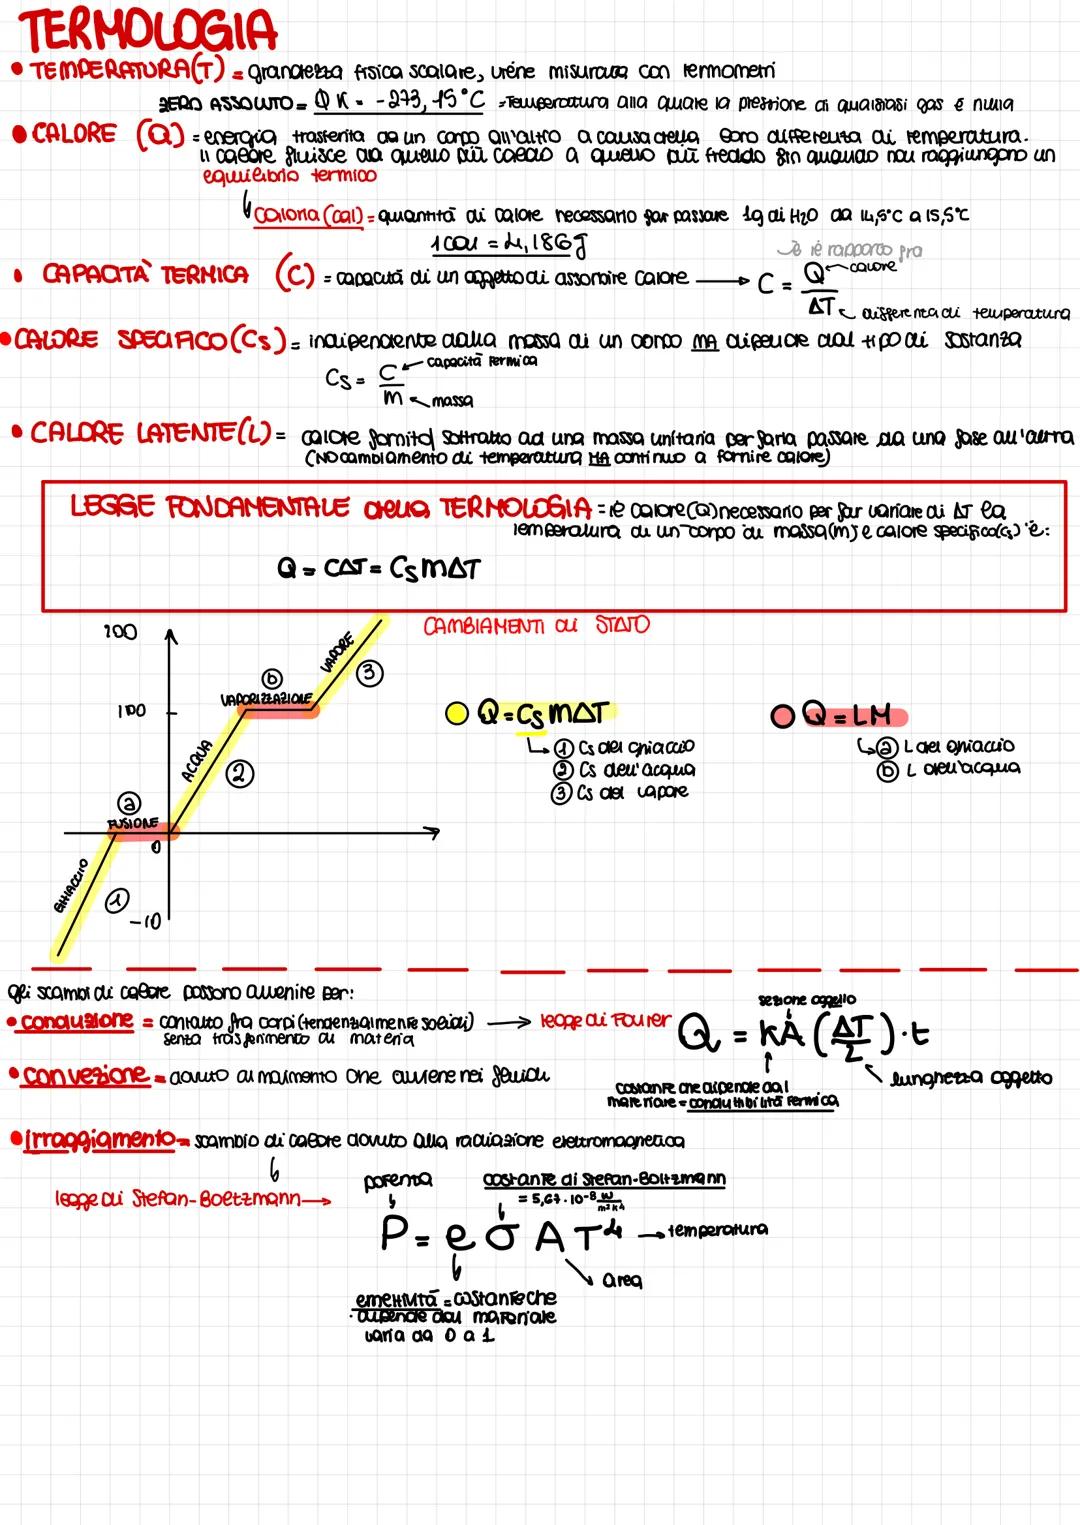 TERMOLOGIA
• TEMPERATURA(T) = grandezza fisica scalare, viene misurata con termometri
ZERO ASSOLUTO = 0 K = -273,15°C = Temperatura alla quale la pressione di qualsiasi gas è nulla
• CALORE (Q) = energia trasferita da un corpo all'altro a causa della loro differenza di temperatura.
Il calore fluisce da quello più caldo a quello più freddo fin quando non raggiungono un
equilibrio termico
Caloria (cal) = quantità di calore necessario far passare 1g di H2O da 14,5°C a 15,5°C
1 cal = 4,186 J
• CAPACITÀ TERMICA (C) = capacità di un oggetto di assorbire calore → C = Q/ΔT
è il rapporto fra
calore
differenza di temperatura
• CALORE SPECIFICO (Cs) = indipendente dalla massa di un corpo MA dipende dal tipo di sostanza
Cs = C/m
capacità termica
massa
• CALORE LATENTE (L) = calore fornito/sottratto ad una massa unitaria per farla passare da una fase all'altra
(NO cambiamento di temperatura MA continuo a fornire calore)
LEGGE FONDAMENTALE della TERMOLOGIA = il calore (Q) necessario per far variare di ΔT la
temperatura di un corpo di massa (m) e calore specifico (cs) è:
Q = CΔT = CsmΔT
CAMBIAMENTI di STATO
200
100
0
-10
GHIACCIO
1
a
FUSIONE
ACQUA
2
b
VAPORIZZAZIONE
VAPORE
3
Q = Cs mΔT
1 Cs del ghiaccio
2 Cs dell'acqua
3 Cs del vapore
Q = LM
a L del ghiaccio
b L dell'acqua
gli scambi di calore possono avvenire per:
• conduzione = contatto fra corpi (tendenzialmente solidi) → legge di Fourier
senza trasferimento di materia
sezione oggetto
Q = kA (ΔT/L) · t
lunghezza oggetto
costante che dipende dal
materiale = conducibilità termica
• convezione = dovuto al movimento che avviene nei fluidi
• Irraggiamento = scambio di calore dovuto alla radiazione elettromagnetica
legge di Stefan-Boltzmann →
potenza
costante di Stefan-Boltzmann
= 5,67 · 10-8 W/m²K4
P = e σ A T4 → temperatura
area
emettività = costante che
dipende dal materiale
varia da 0 a 1